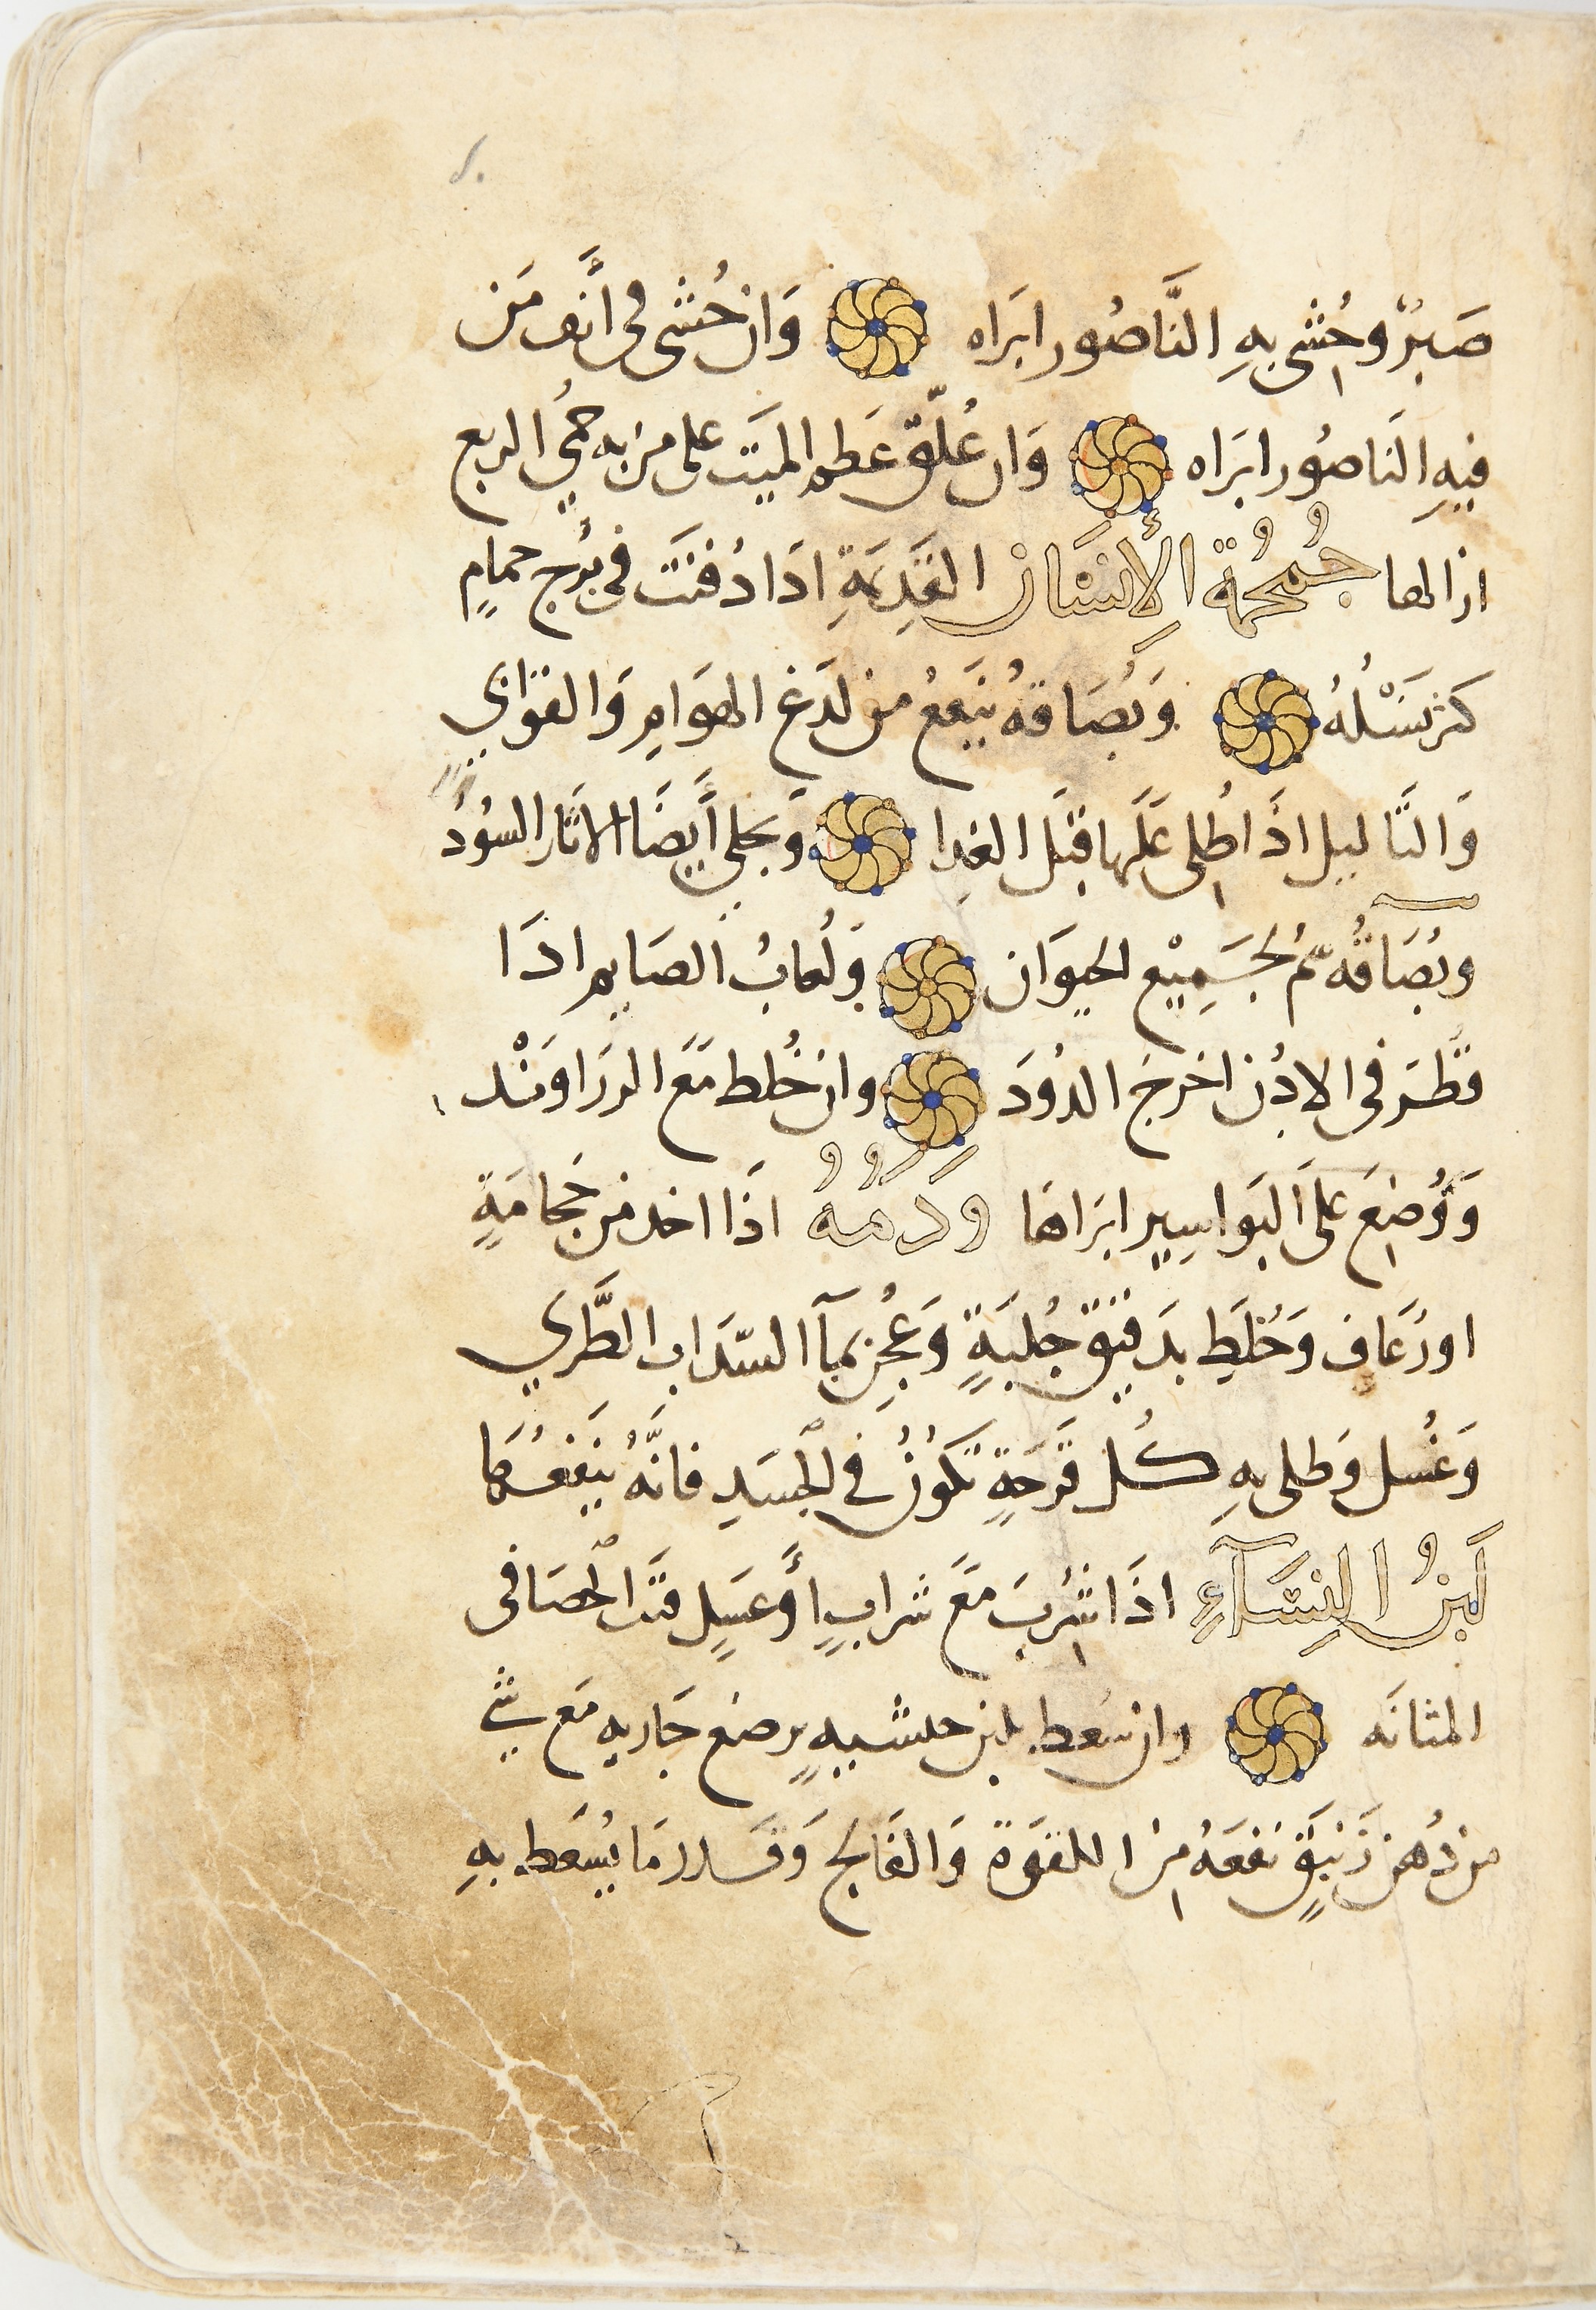 صَبِرٌ وحُشِي بهِ النَّاصُور ابرَاه وَان حُشي في أنَف مَن
فيهِ الناصُور ابرَاه وَان عُلّق عَظم الميَت على من به حمّيُ الربع
ازالها جُمجُمَةُ الإِنسَان القَدِيمَةِ اذَا دُفنَت في بُرج حمامٍ
كثر نسْلُهُ وَبُصَاقهُ ينَفعُ من لدَغ الهوَامِ وَالقوَابي
وَالثَاليل اذَا طُلِي عَلَيهَا قبَل الغدِا وَيجلي أيضًا الاثَار السُودُ
وبُصَاقُه سُم لجَمِيْع الحيوَان وَلُعابُ الصَايم اذَا
قطَّرَ في الادُن اخرجَ الدُودَ وان خُلط مَعَ الزرَاوَنْد
وَوُضِعَ علىَ البَواسِير ابرَاهَا وَدَمُهُ اذَا اخد من حَجامَةٍ
او رُعَاف وَخُلِطَ بدَقيِق حُلبَةٍ وَعُجِن بمآ السّدَاب الطَّري
وَغُسل وَطلى بهِ كُل قَرحَةٍ تكوُنُ في الجسَدِ فانَّهُ ينَفعُهَا
لَبنُ النِسَآءِ اذَا شُرِبَ مَعَ شرابٍ أوَ عسَلٍ فتَت الحصَا في
المثانَه وان سُعط بلبن حبشيهٍ يرضع جَاريه مَع شيٍ
من دُهن زَنبَقٍ نفعَهُ مِن اللقوَة وَالفَالج وَقَدر مَا يُسعَط بهِ